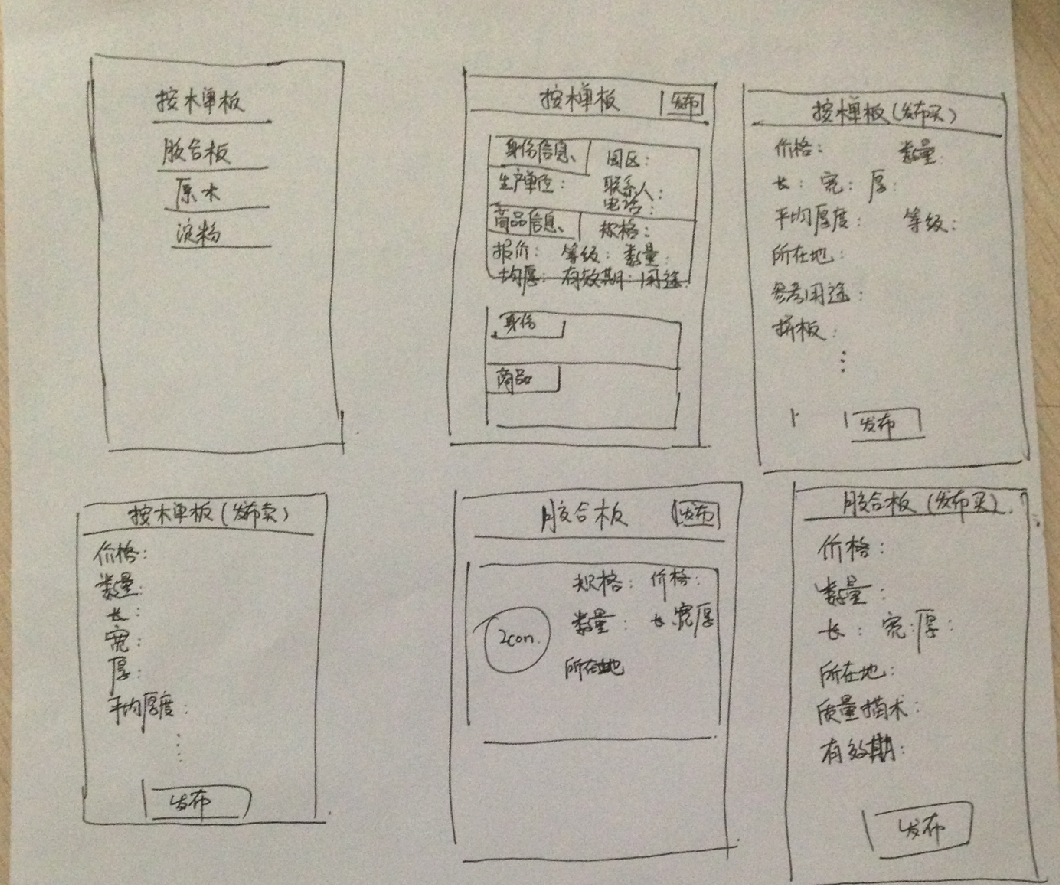 按木单板
胶合板
原木
淀粉
按木单板 发布
身份信息、 园区：
生产单位： 联系人：
电话：
商品信息、 规格：
报价： 等级： 数量：
均厚： 有效期： 用途：
身份
商品
按木单板（发布买）
价格： 数量：
长： 宽： 厚：
平均厚度： 等级：
所在地：
参考用途：
拼板：
发布
按木单板（发布卖）
价格：
数量：
长：
宽：
厚：
平均厚度：
发布
胶合板 发布
规格： 价格：
数量： 长 宽 厚
Icon.
所在地
胶合板（发布买）
价格：
数量：
长： 宽： 厚：
所在地：
质量描术：
有效期：
发布